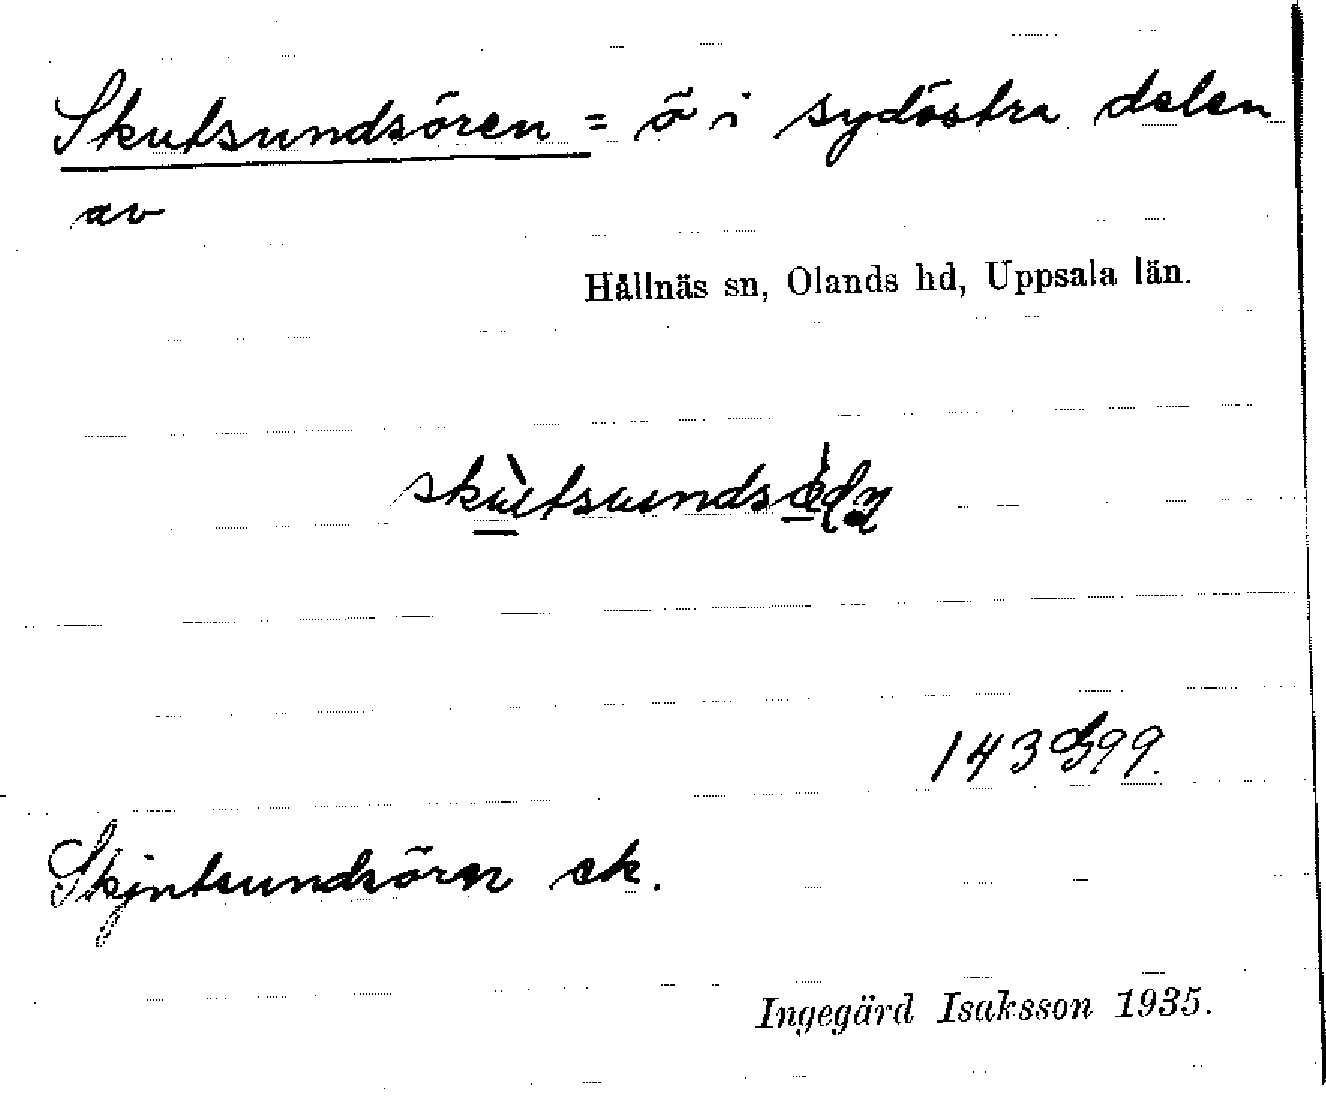 Skutsundsören = ö i sydöstra delen
av
Hållnäs sn, Olands hd, Uppsala län.
143 99.
Skjutsundsörn ek.
Ingegärd Isaksson 1935.